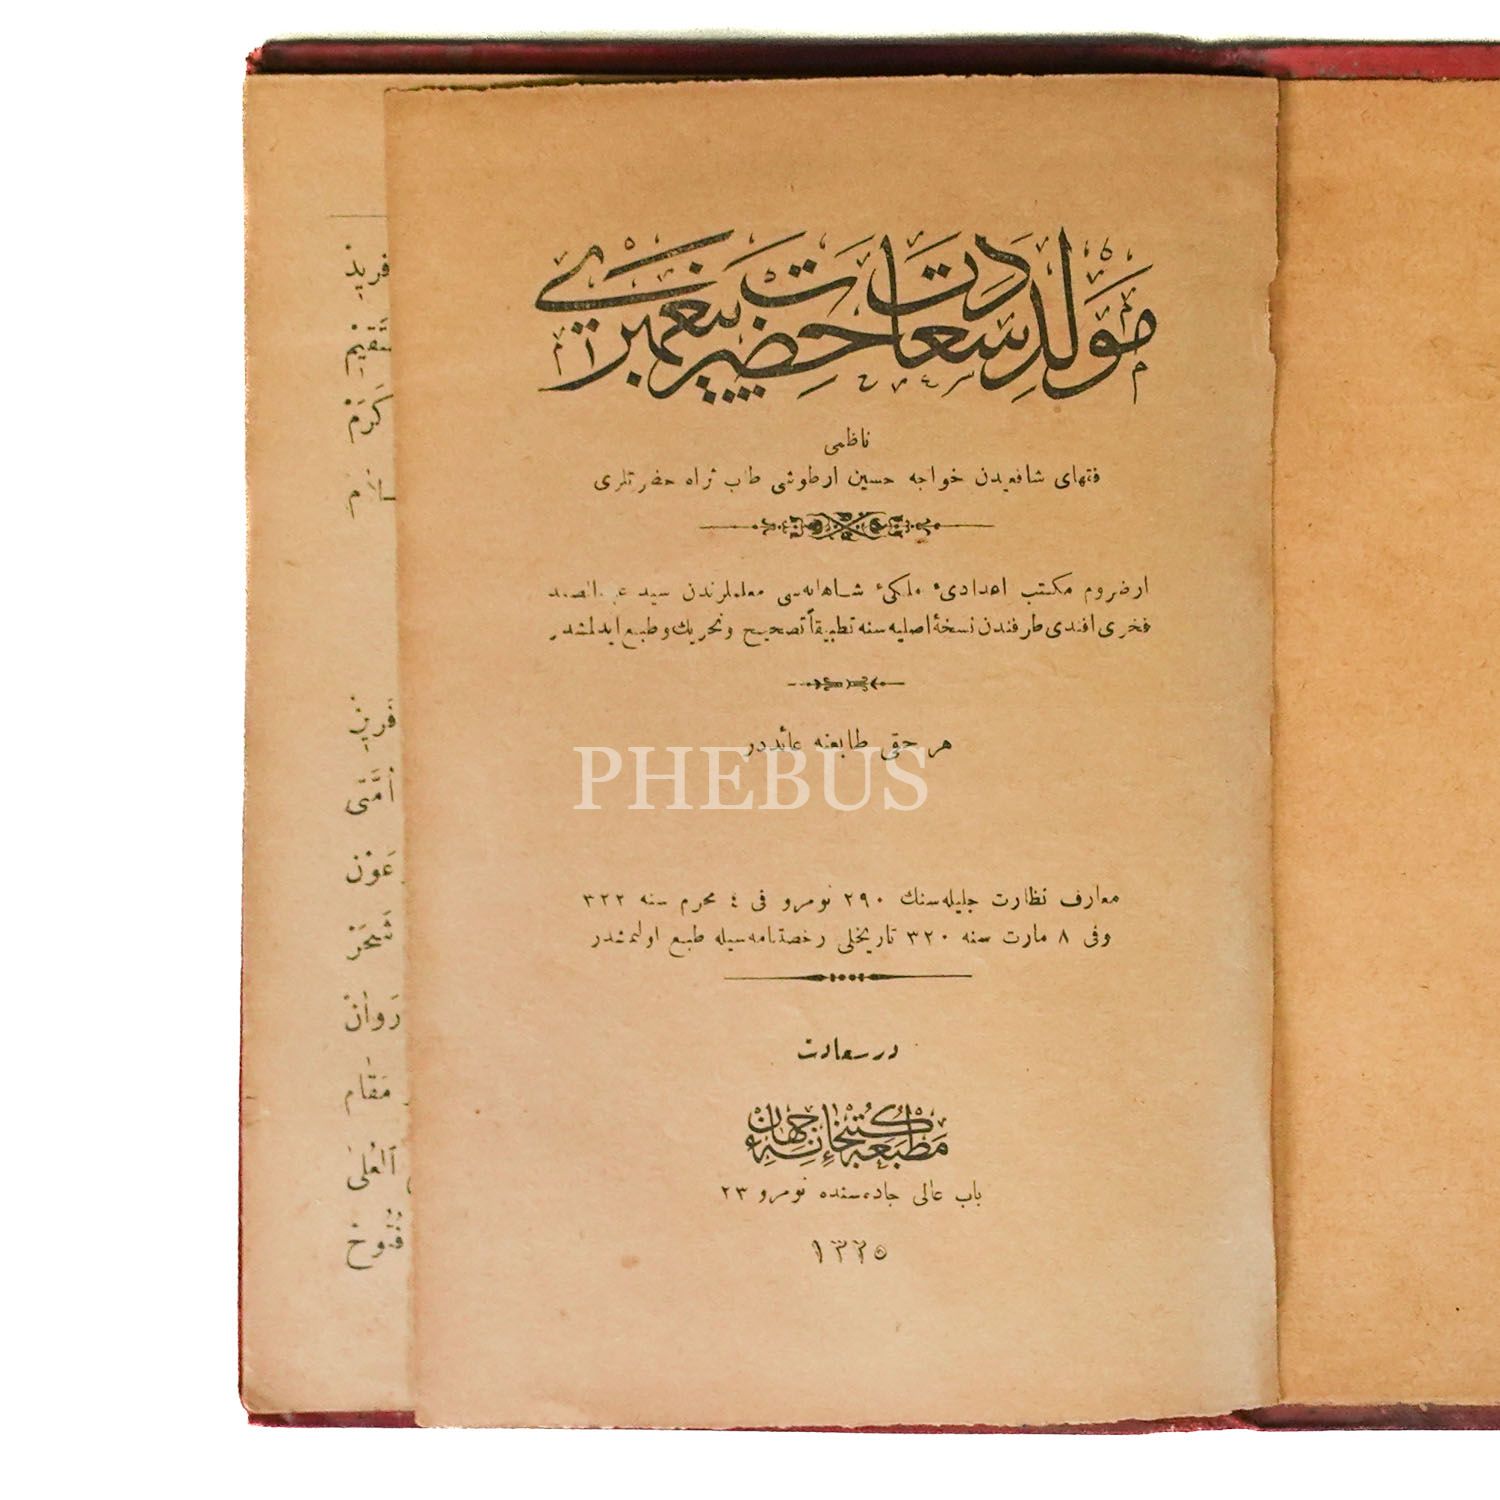 مولد سعادت حضرت پیغمبری
ناظمی
فقهای شافعیدن خواجه حسین ارطوشی طاب ثراه حضرتلری
ارضروم مکتب اعدادیٔ ملکیٔ شاهانه‌سی معلملرندن سید عبدالصمد
فخری افندی طرفندن نسخهٔ اصلیه‌سنه تطبیقاً تصحیح وتحریك وطبع ایدلمشدر
هر حقی طابعنه عائددر
PHEBUS
معارف نظارت جلیله‌سنك ٢٩٠ نومرو فی ٤ محرم سنه ٣٢٢
وفی ٨ مارت سنه ٣٢٠ تاریخلی رخصتنامه‌سیله طبع اولنمشدر
درسعادت
مَطْبَعَهٔ كُتُبْخَانَهٔ جِهَانْ
باب عالی جاده‌سنده نومرو ٢٣
١٣٢٥
كَرَمْ
اُمَّتی
عَوْنْ
رَوانْ
مَقام
العُلیٰ
فُتُوحْ